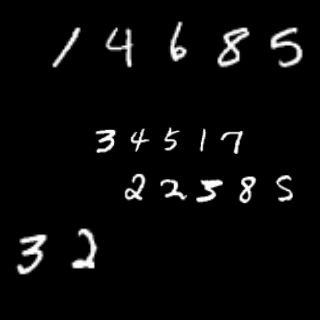 14685
34517
22585
32